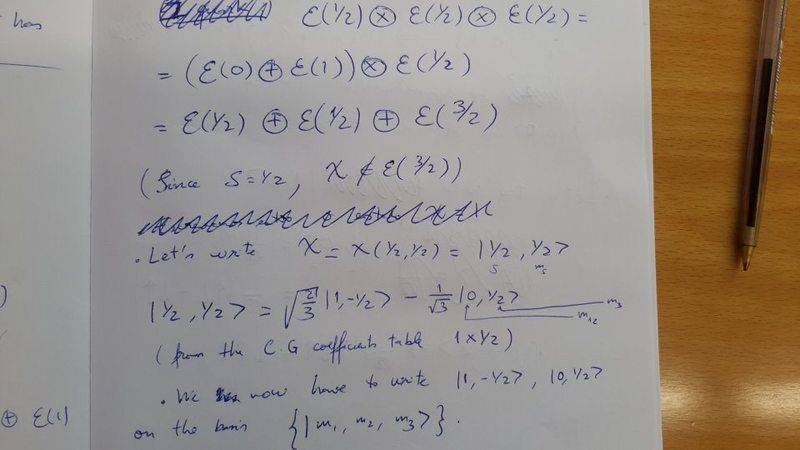 has
ℰ(1/2) ⊗ ℰ(1/2) ⊗ ℰ(1/2) =
= (ℰ(0) ⊕ ℰ(1)) ⊗ ℰ(1/2)
= ℰ(1/2) ⊕ ℰ(1/2) ⊕ ℰ(3/2)
(Since S=1/2, χ ∉ ℰ(3/2))
. Let's write χ = χ(1/2,1/2) = |1/2, 1/2>
s m_s
|1/2, 1/2> = √(2/3) |1,-1/2> - 1/√3 |0,1/2>
m_3
m_12
(from the C.G coefficients table 1x1/2)
. We now have to write |1,-1/2>, |0,1/2>
on the basis {|m_1, m_2, m_3>}.
)
⊕ ℰ(1)